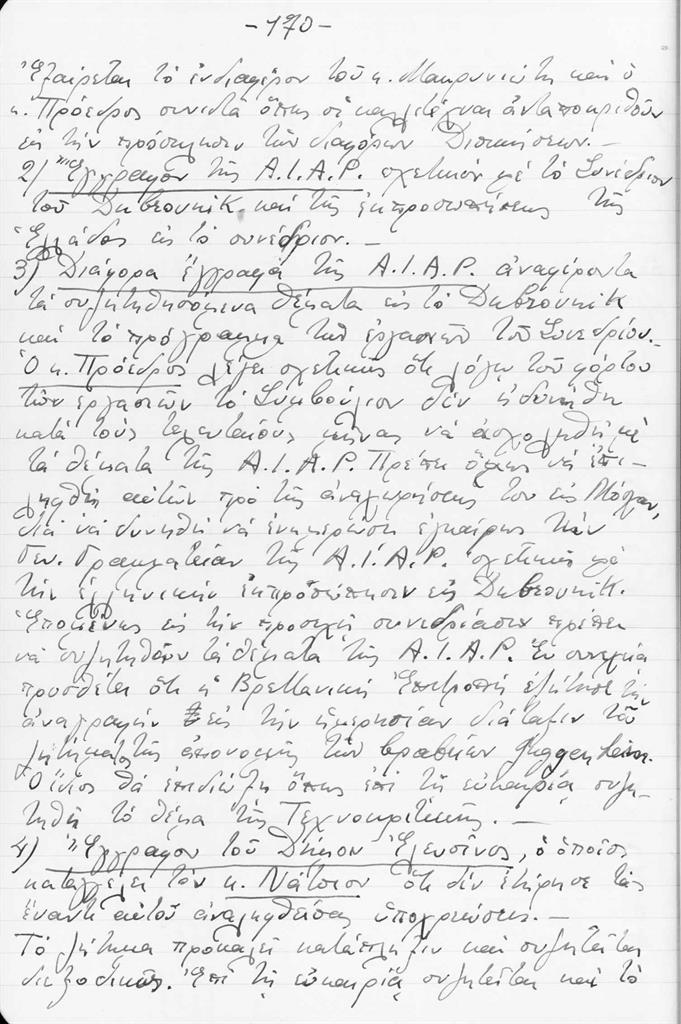 -170-
Ἐξαίρεται τὸ ἐνδιαφέρον τοῦ κ. Μακρυνιώτη καὶ ὁ
κ. Πρόεδρος συνιστᾶ ὅπως οἱ καλλιτέχναι ἀνταποκριθοῦν
εἰς τὴν πρόσκλησιν τῶν διαφόρων Διοικήσεων. —
2) Ἔγγραφον τῆς A.I.A.P. σχετικὸν μὲ τὸ Συνέδριον
τοῦ Dubrovnik καὶ τῆς ἐκπροσωπήσεως τῆς
Ἑλλάδος εἰς τὸ συνέδριον. —
3) Διάφορα ἔγγραφα τῆς A.I.A.P. ἀναφέροντα
τὰ συζητηθησόμενα θέματα εἰς τὸ Dubrovnik
καὶ τὸ πρόγραμμα τῶν ἐργασιῶν τοῦ Συνεδρίου. —
Ὁ κ. Πρόεδρος λέγει σχετικῶς ὅτι λόγῳ τοῦ φόρτου
τῶν ἐργασιῶν τὸ Συμβούλιον δὲν ἠδυνήθη
κατὰ τοὺς τελευταίους μῆνας νὰ ἀσχοληθῇ μὲ
τὰ θέματα τῆς A.I.A.P. Πρέπει ὅμως νὰ ἐπι-
ληφθῇ αὐτῶν πρὸ τῆς ἀναχωρήσεως του εἰς
διὰ νὰ δυνηθῇ νὰ ἐνημερώσῃ ἐγκαίρως τὴν
Γεν. Γραμματείαν τῆς A.I.A.P. σχετικῶς μὲ
τὴν ἑλληνικὴν ἐκπροσώπησιν εἰς Dubrovnik.
Ἑπομένως εἰς τὴν προσεχῆ συνεδρίασιν πρέπει
νὰ συζητηθοῦν τὰ θέματα τῆς A.I.A.P. Ἐν συνεχείᾳ
προσθέτει ὅτι ἡ Βρεττανικὴ Ἐπιτροπὴ ἐζήτησε τὴν
ἀναγραφὴν εἰς τὴν ἡμερησίαν διάταξιν τοῦ
ζητήματος τῆς ἀπονομῆς τῶν βραβείων Guggenheim.
Ὁ ἴδιος θὰ ἐπιδιώξῃ ὅπως ἐπὶ τῇ εὐκαιρίᾳ συζη-
τηθῇ τὸ θέμα τῆς Τεχνοκριτικῆς. —
4) Ἔγγραφον τοῦ Δήμου Ἐλευσῖνος, ὁ ὁποῖος
καταγγέλει τὸν κ. Νάτσιον ὅτι δὲν ἐτήρησε τὰς
ἔναντι αὐτοῦ ἀναληφθείσας ὑποχρεώσεις. —
Τὸ ζήτημα προκαλεῖ κατάπληξιν καὶ συζητεῖται
διεξοδικῶς. Ἐπὶ τῇ εὐκαιρίᾳ συζητεῖται καὶ τὸ